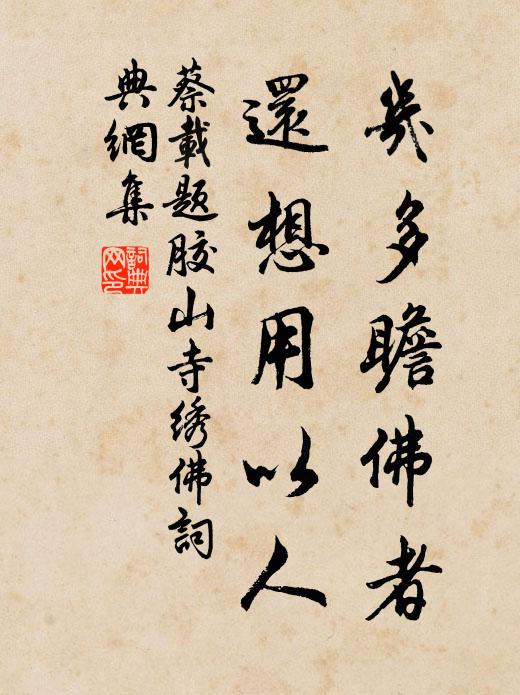 幾多瞻佛者
還想用以人
蔡載题胶山寺绣佛詞
典網集
詞典网印